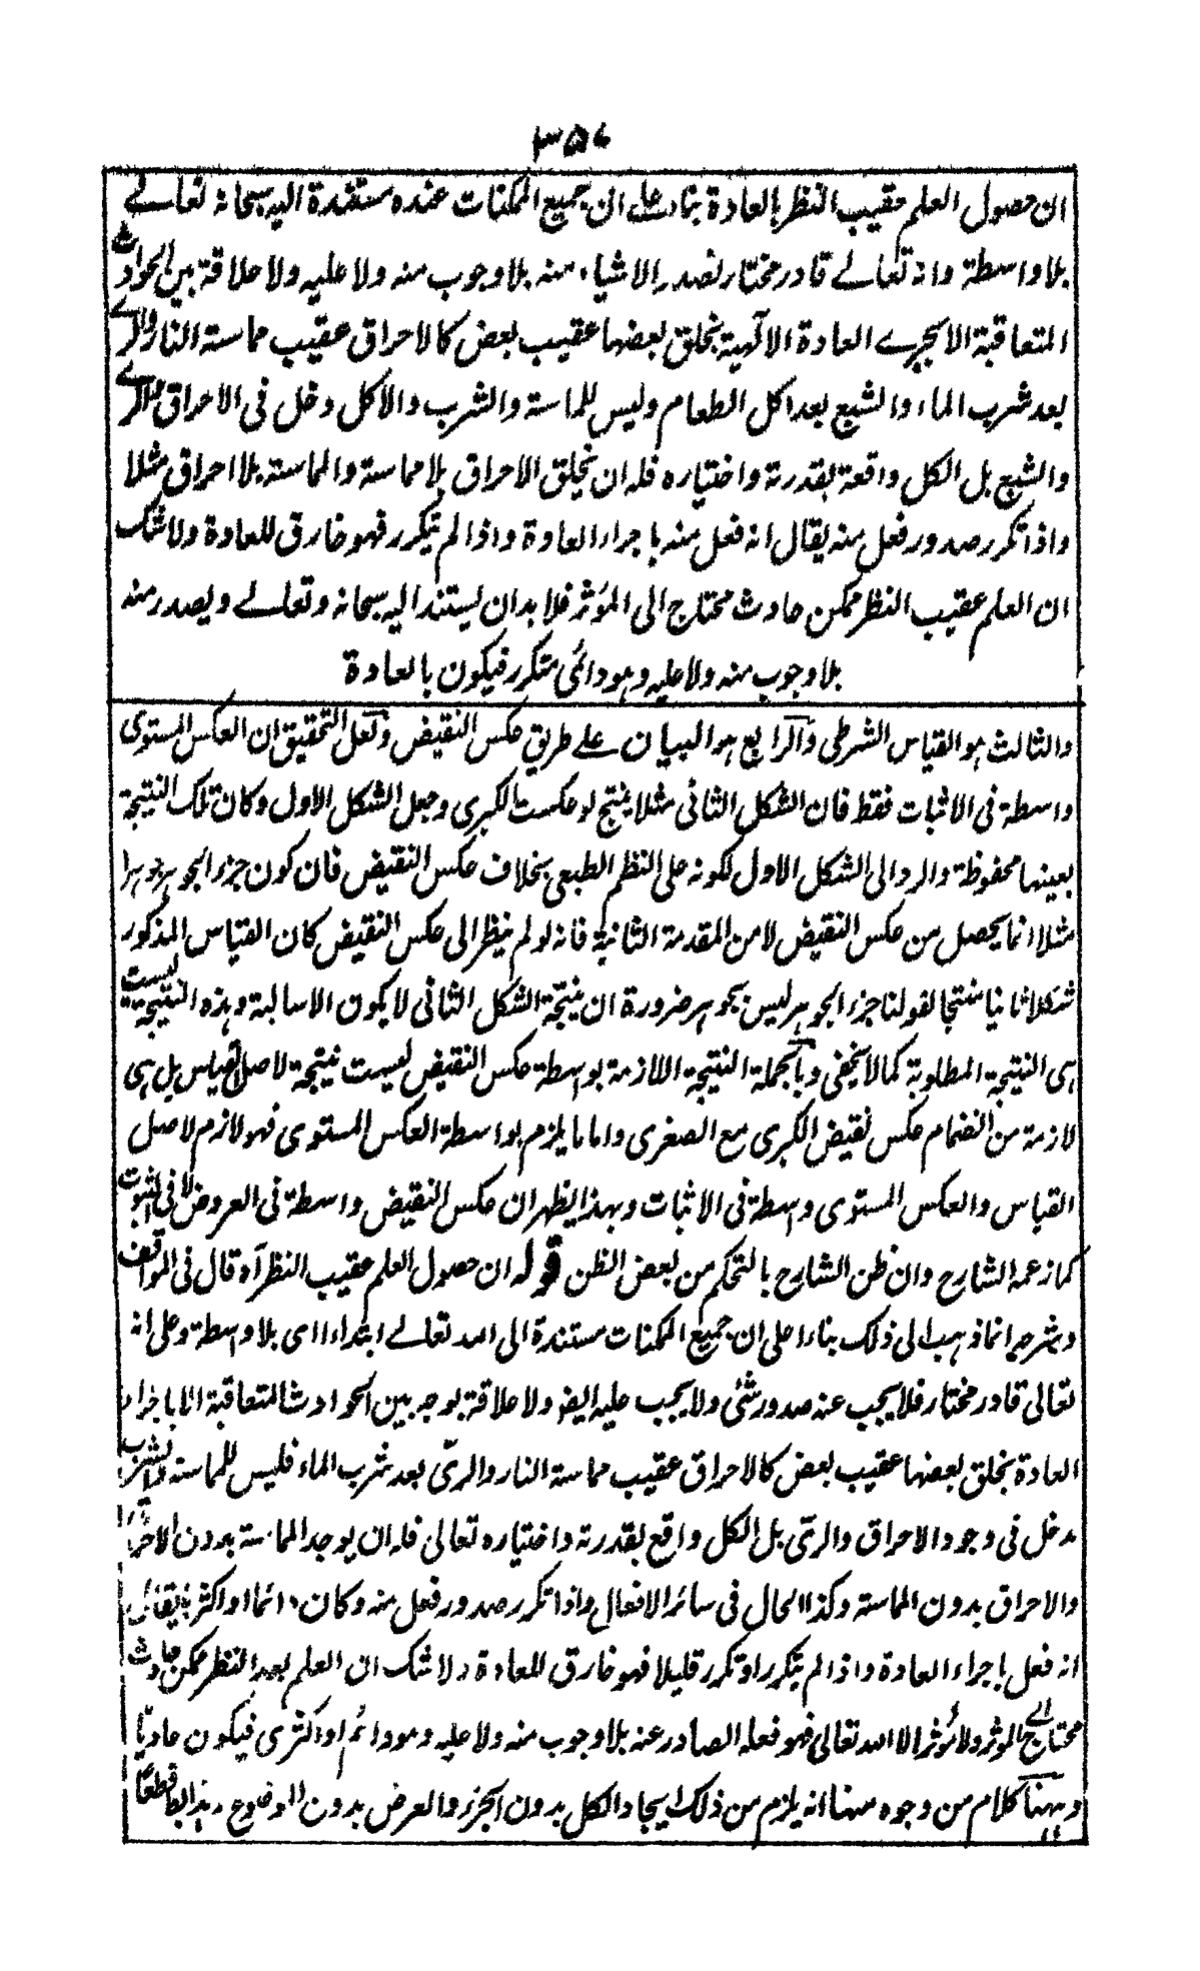 ٣٥٧
ان حصول العلم عقيب النظر بالعادة بناء على ان جميع الممكنات عنده مستندة اليه سبحانه تعالے
بلا واسطة وانه تعالے قادر مختار تصدر الاشياء منه بلا وجوب منه ولا عليه ولا علاقة بين الحوادث
المتعاقبة الا بجرے العادة الالٓهية بخلق بعضها عقيب بعض كالاحراق عقيب مماسة النار والرے
بعد شرب الماء والشبع بعد اكل الطعام وليس للماسة والشرب والاكل دخل فى الاحراق والرے
والشبع بل الكل واقعة بقدرته واختياره فله ان يخلق الاحراق بلا مماسة والمماسة بلا احراق مثلا
واذا تكرر صدور فعل منه يقال انه فعل منه باجراء العادة واذا لم يتكرر فهو خارق للعادة ولا شك
ان العلم عقيب النظر ممكن حادث محتاج الى المؤثر فلا بد ان يستند اليه سبحانه وتعالے ويصدر منه
بلا وجوب منه ولا عليه وهو دائمى متكرر فيكون بالعادة
والثالث هو القياس الشرطى والرابع هو البيان علے طريق عكس النقيض ولعل التحقيق ان العكس المستوى
واسطة فى الاثبات فقط فان الشكل الثانى مثلا ينتج لو عكست الكبرى وجعل الشكل الاول وكان تلك النتيجة
بعينها محفوظة والرد الى الشكل الاول لكونه على النظم الطبعى بخلاف عكس النقيض فان كون جزء الجوهر جوهرا
مثلا انما يحصل من عكس النقيض لا من المقدمة الثانية فانه لو لم ينظر الى عكس النقيض كان القياس المذكور
شكلا ثانيا منتجا لقولنا جزء الجوهر ليس بجوهر ضرورة ان نتيجة الشكل الثانى لا يكون الا سالبة وهذه النتيجة ليست
هى النتيجة المطلوبة كما لا يخفى وبالجملة النتيجة اللازمة بواسطة عكس النقيض ليست نتيجة لاصل القياس بل هى
لازمة من انضمام عكس نقيض الكبرى مع الصغرى واما ما يلزم بواسطة العكس المستوى فهو لازم لاصل
القياس والعكس المستوى واسطة فى الاثبات وبهذا يظهر ان عكس النقيض واسطة فى العروض لا فى الثبوت
كما زعمه الشارح وان ظن الشارح بالتحكم من بعض الظن قوله ان حصول العلم عقيب النظر آه قال فى المواقف
وشرحه انما ذهب الى ذلك بناء على ان جميع الممكنات مستندة الى الله تعالے ابتداء اى بلا واسطة وعلى انه
تعالى قادر مختار فلا يجب عنه صدور شئى ولا يجب عليه ايضا ولا علاقة بوجه بين الحوادث المتعاقبة الا باجراء
العادة بخلق بعضها عقيب بعض كالاحراق عقيب مماسة النار والرىّ بعد شرب الماء فليس للماسة والشرب
مدخل فى وجود الاحراق والرىّ بل الكل واقع بقدرته واختياره تعالى فله ان يوجد المماسة بدون الاحراق
والاحراق بدون المماسة وكذا الحال فى سائر الافعال واذا تكرر صدور فعل منه وكان دائما او اكثريا يقال
انه فعل باجراء العادة واذا لم يتكرر او تكرر قليلا فهو خارق للعادة ولا شك ان العلم بعد النظر ممكن حادث
محتاج الى المؤثر ولا مؤثر الا الله تعالى فهو فعله الصادر عنه بلا وجوب منه ولا عليه وهو دائم او اكثرى فيكون عاديّا
وههنا كلام من وجوه منها انه يلزم من ذلك ايجاد الكل بدون الجزء والعرض بدون الموضوع